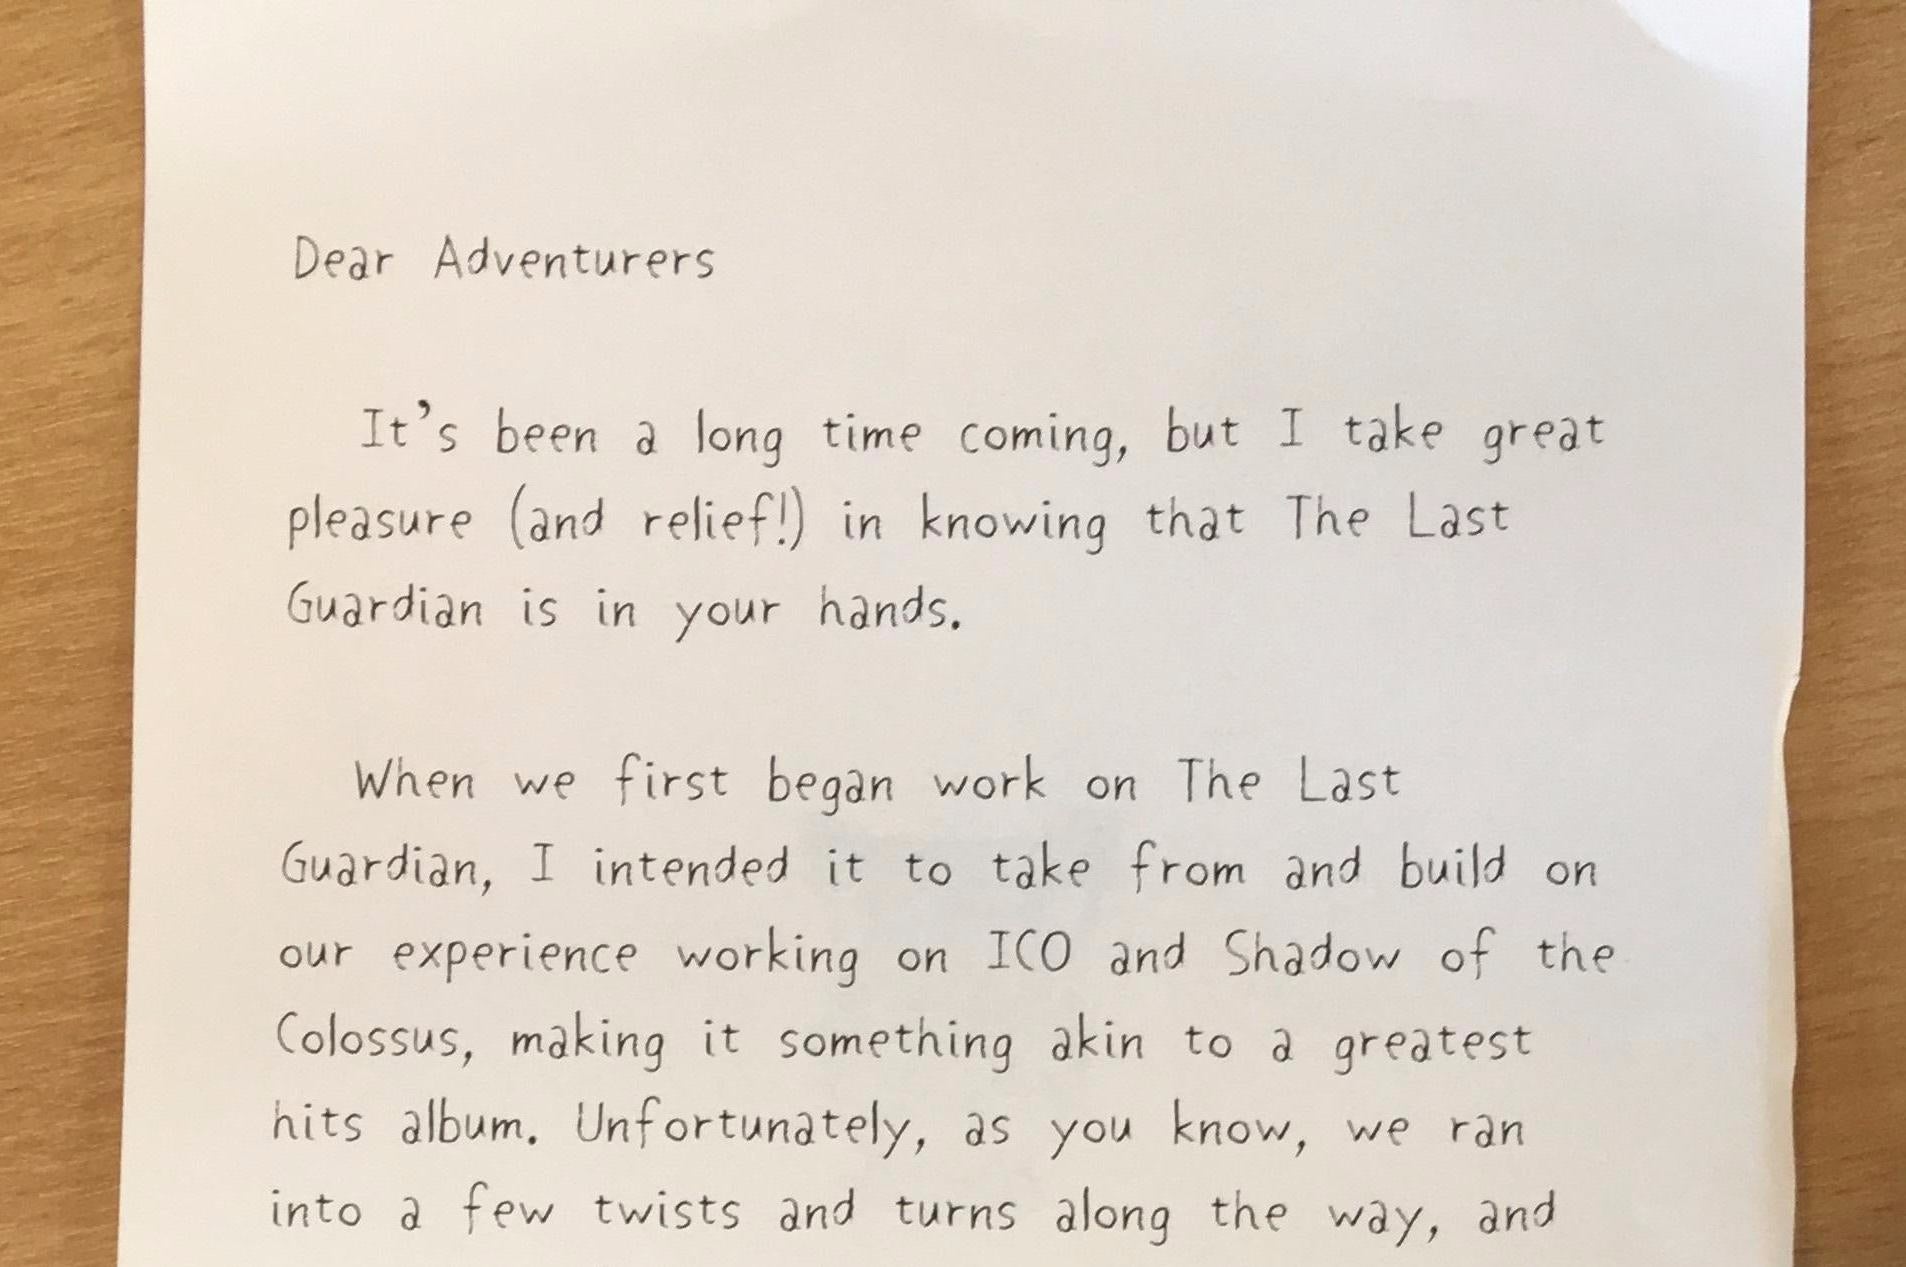 Dear Adventurers
It's been a long time coming, but I take great
pleasure (and relief!) in knowing that The Last
Guardian is in your hands.
When we first began work on The Last
Guardian, I intended it to take from and build on
our experience working on ICO and Shadow of the
Colossus, making it something akin to a greatest
hits album. Unfortunately, as you know, we ran
into a few twists and turns along the way, and